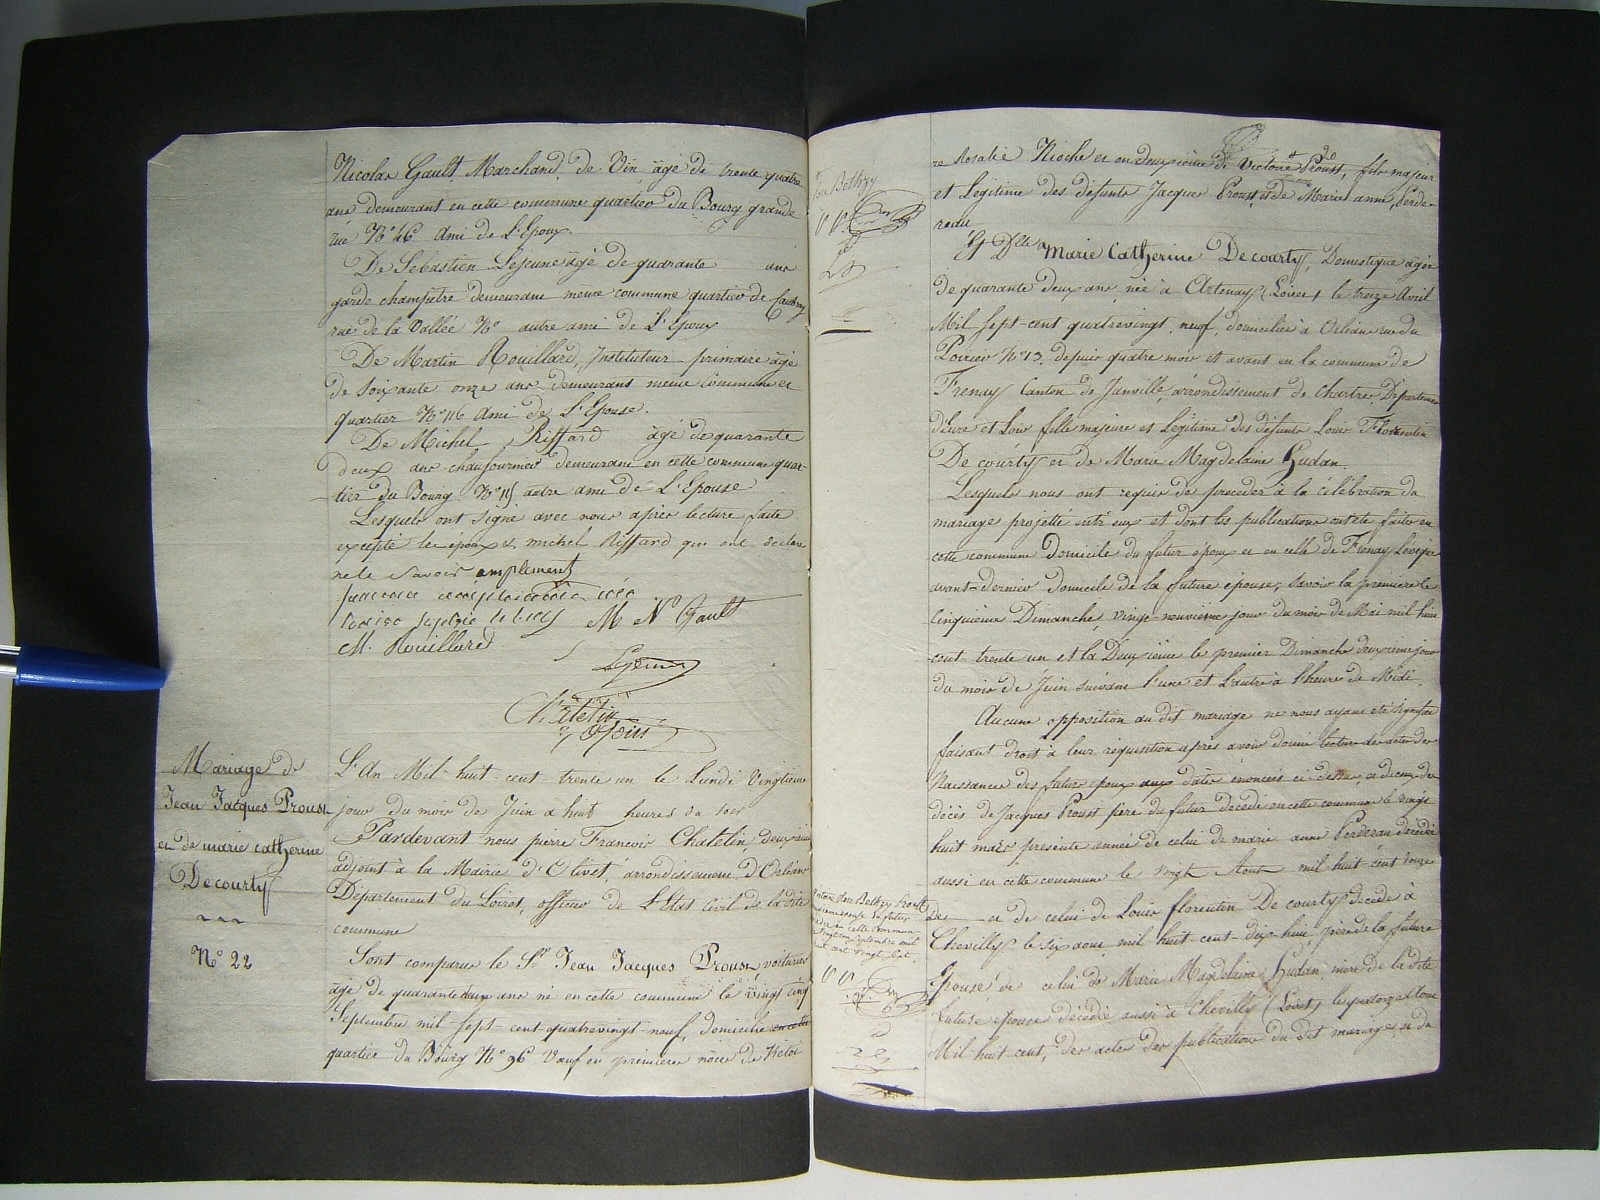 Nicolas Gault Marchand de Vin âgé de trente quatre
ans demeurant en cette commune quartier du Bourg grande
rue N° 46 Ami de L'Epoux.
De Sebastien Lejeune âgé de quarante ans
garde champêtre demeurant meme commune quartier de
rue de la Vallée N° autre ami de L'Epoux
De Martin Rouillard, Instituteur primaire âgé
de soixante onze ans demeurant meme commune et
quartier N° 116 Ami de L'Epouse.
De Michel Riffard âgé de quarante
deux ans chaufournier demeurant en cette commune quar-
tier du Bourg N° 115 autre ami de L'Epouse
Lesquels ont signé avec nous après lecture faite
excepté les époux & michel Riffard qui ont déclaré
ne le savoir amplement
M N Gault
M. Rouillard
Lejeune
Chatelin
adjoint
Mariage de
Jean Jacques Proust
et de marie catherine
Decourty
N° 22
L'An Mil-huit-cent trente un le Lundi Vingtieme
jour du mois de Juin à huit heures du soir
Pardevant nous pierre Francois Chatelin deuxieme
adjoint à la Mairie d'Olivet, arrondissement d'Orléans
Département du Loiret, officier de L'Etat Civil de la dite
commune
Sont comparus le Sr Jean Jacques Proust, voiturier
âgé de quarante deux ans né en cette commune le vingt cinq
Septembre mil-sept-cent-quatrevingt-neuf, domicilié en cette
quartier du Bourg N° 96 Vœuf en premieres noces de Victoi
20
re Rosalie Rioche et en deuxième de Victoire Proust, fils majeur
et Légitime des défunts Jacques Proust et de Marie anne Perde-
reau
Et Dlle Marie Catherine Decourty, Domestique âgée
de quarante deux ans née à Artenay (Loiret) le treize Avril
Mil sept-cent quatrevingt neuf, domiciliée à Orléans rue du
Poirier N° 13 depuis quatre mois et avant en la commune de
Frenay Canton de Janville, arrondissement de chartres Département
d'Eure et Loir fille majeure et Légitime des défunts Louis Florentin
Decourty et de Marie Magdelaine Hudan.
Lesquels nous ont requis de procéder à la célébration du
mariage projetté entr'eux et dont les publications ont été faites en
cette commune Domicile du futur époux et en celle de Frenay Lévêque
avant-dernier domicile de la future épouse; savoir la première le
cinquieme Dimanche, vingt-neuvieme jour du mois de Mai mil huit
cent-trente un et la Deuxième le premier Dimanche deuxième jour
du mois de Juin suivant l'une et L'autre à l'heure de Midi.
Aucune opposition au dit mariage ne nous ayant été signifiée
faisant droit à leur réquisition après avoir donné lecture des actes des
Naissances des futurs époux aux dates énoncées ci-dessus, de ceux de
décès de Jacques Proust père du futur décédé en cette commune le vingt
huit mars présente année de celui de marie anne Perdereau décédée
aussi en cette commune le vingt Aout mil huit-cent onze
de et de celui de Louis florentin Decourty décédé à
Chevilly le six aout mil huit-cent-dix-huit, père de la future
Epouse, de celui de Marie Magdelaine Hudan, mère de la dite
future épouse décédée aussi à Chevilly (Loiret) le quatorze Aout
Mil huit-cent, des actes des publications du dit mariage, et du